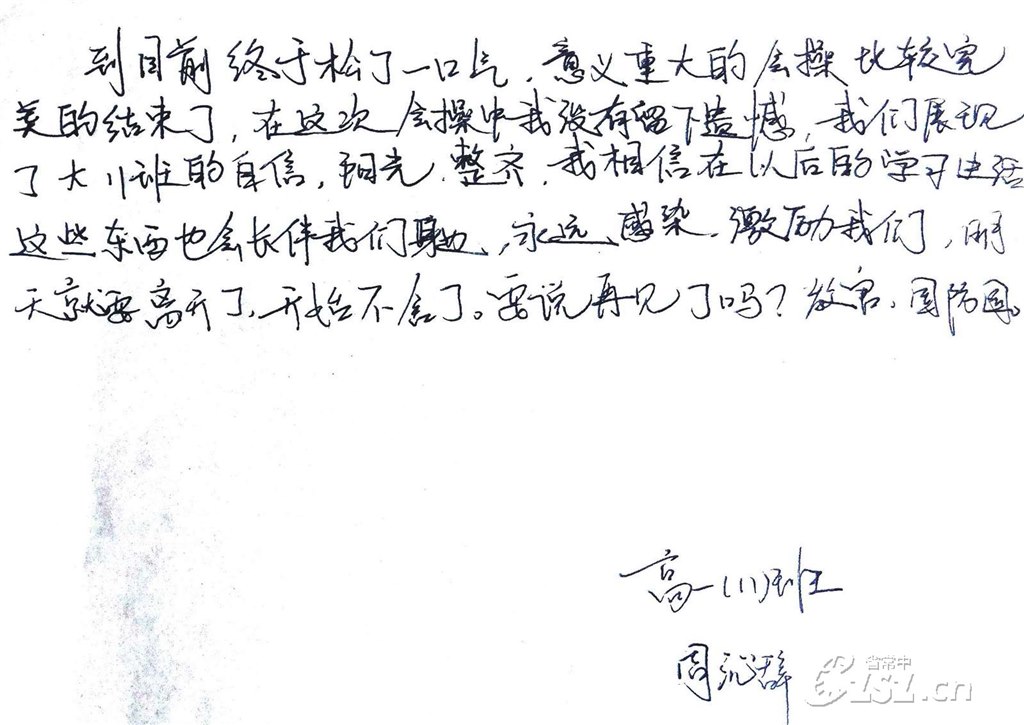 到目前终于松了一口气，意义重大的会操比较完
美的结束了，在这次会操中我没有留下遗憾，我们展现
了大川班的自信，阳光，整齐，我相信在以后的学习生活
这些东西也会长伴我们身边，永远感染，激励我们，明
天就要离开了，开始不舍了。要说再见了吗？教官，国防园。
高一（1）班
周沁辞
省常中
CSZ.cn